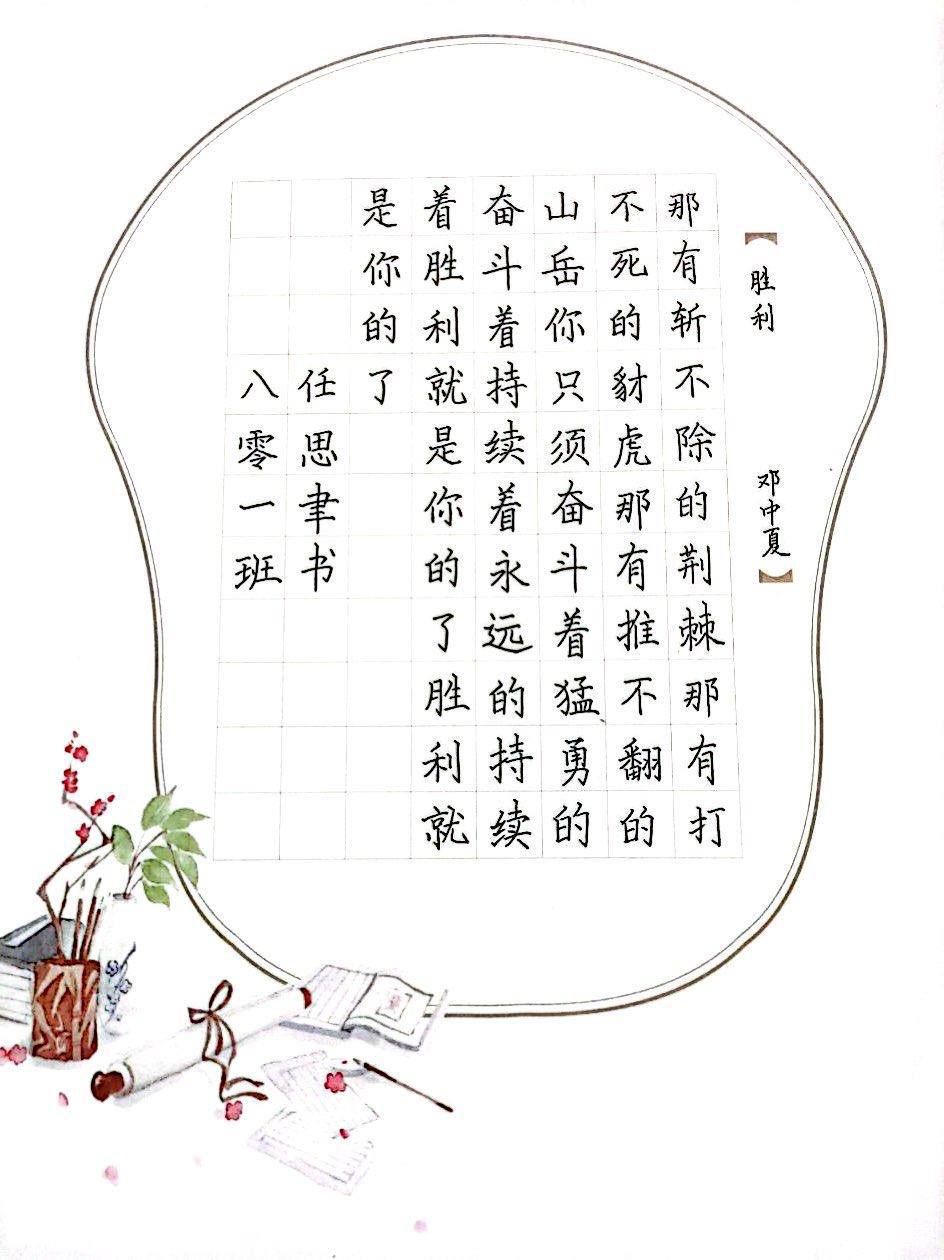 【胜利 邓中夏】
那有斩不除的荆棘那有打
不死的豺虎那有推不翻的
山岳你只须奋斗着猛勇的
奋斗着持续着永远的持续
着胜利就是你的了胜利就
是你的了
任思聿书
八零一班